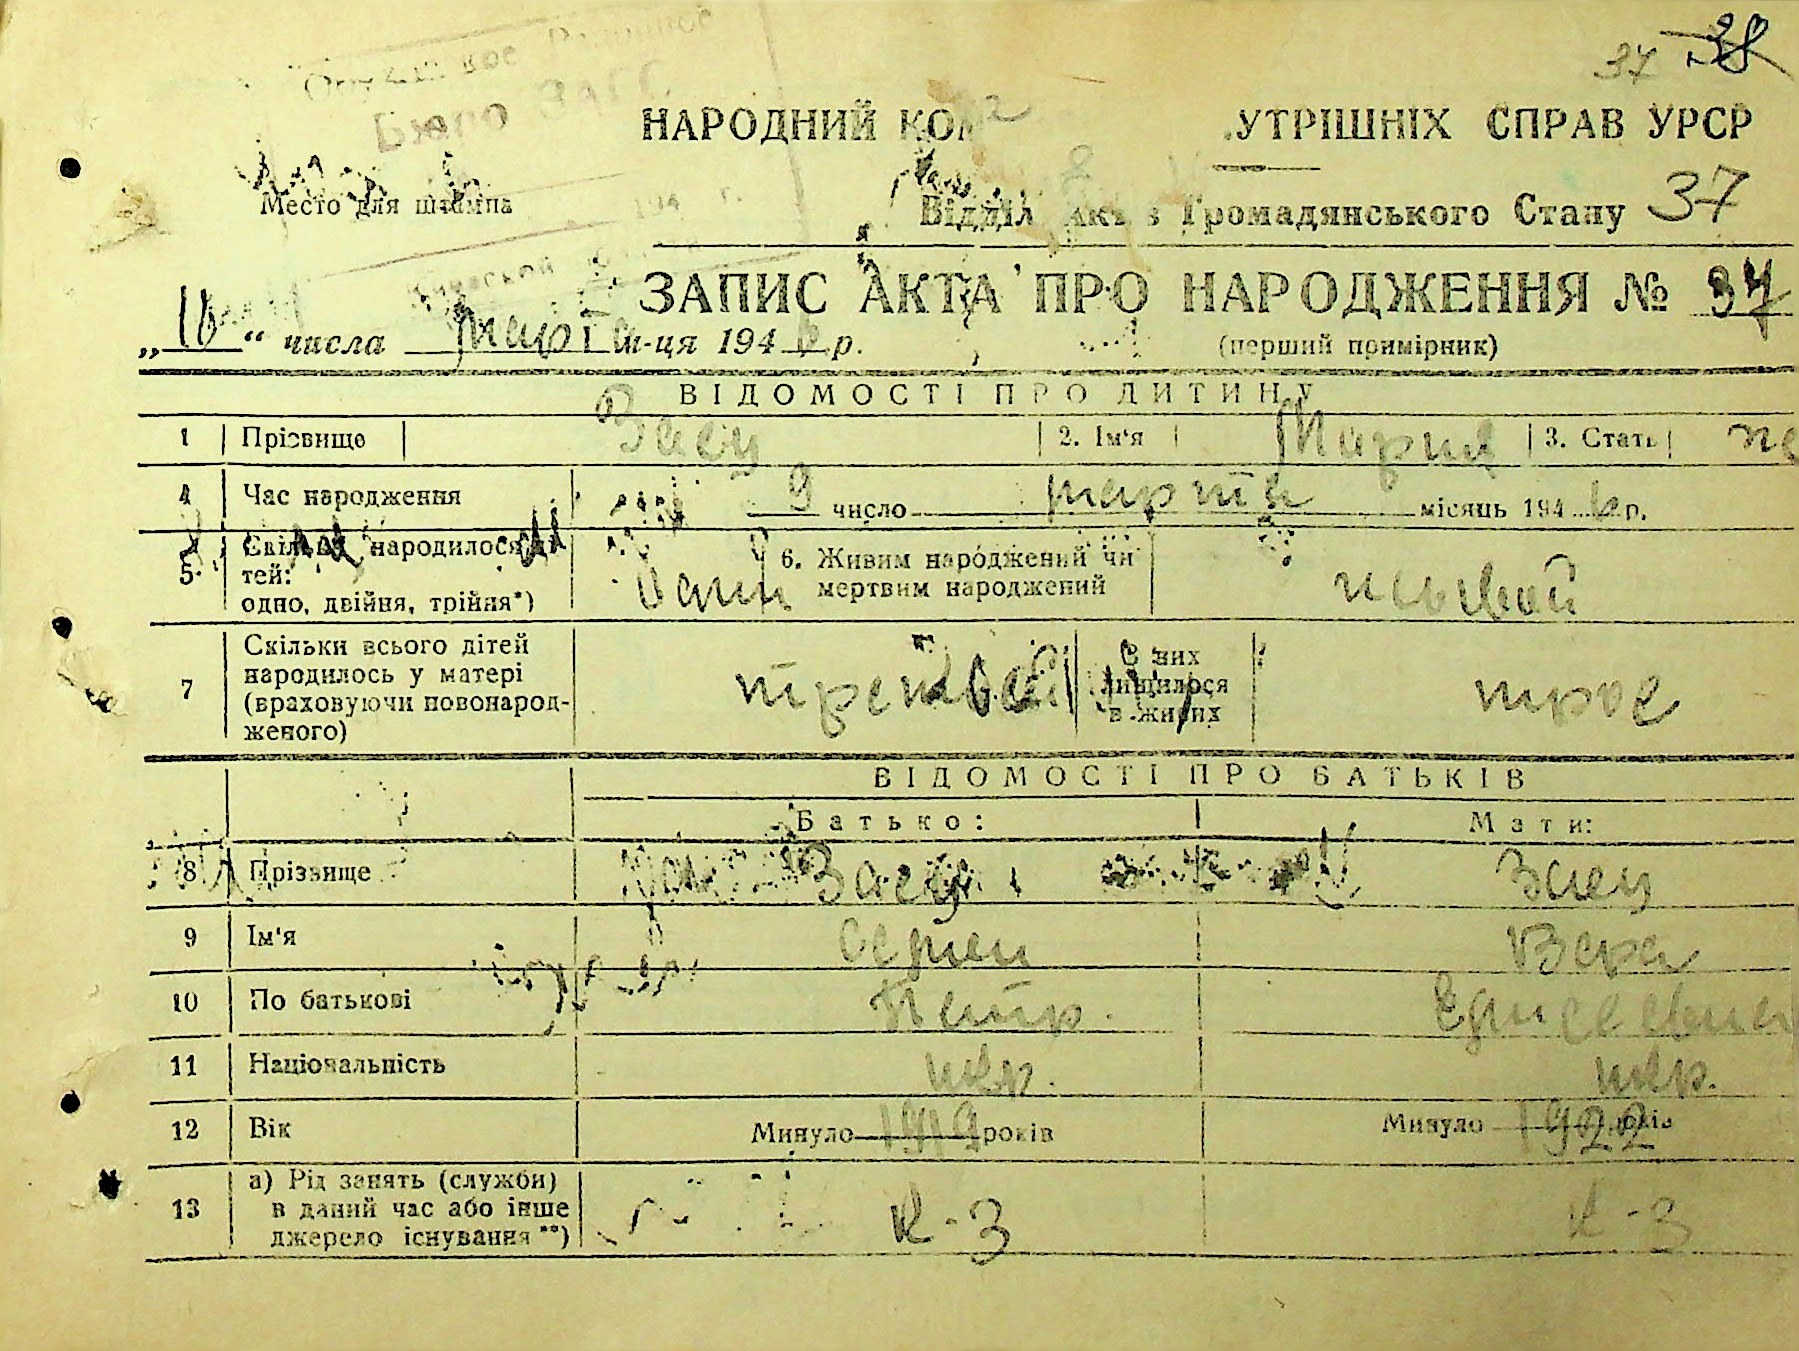 37 38
Бюро ЗАГС
НАРОДНИЙ УТРІШНІХ СПРАВ УРСР
Место для штампа
194 г.
Відділ Актів Громадянського Стану 37
ЗАПИС АКТА ПРО НАРОДЖЕННЯ № 37
„10“ числа марта м-ця 1946 р. (перший примірник)
ВІДОМОСТІ ПРО ДИТИНУ
1 Прізвище Заец 2. Ім'я Мария 3. Стать
4 Час народження 9 число марта місяць 1946 р.
5 Скільки народилося ді
тей:
одно, двійня, трійня*) Один 6. Живим народжений чи
мертвим народжений живой
7 Скільки всього дітей
народилось у матері
(враховуючи новонарод-
женого) третьей З них
лишилося
в живих трое
ВІДОМОСТІ ПРО БАТЬКІВ
Батько: Мати:
8 Прізвище Заец Заец
9 Ім'я Сергей Вера
10 По батькові Петр. Елисеевна
11 Національність укр. укр.
12 Вік Минуло 1919 років Минуло 1922 років
13 а) Рід занять (служби)
в даний час або інше
джерело існування **) к-з к-з